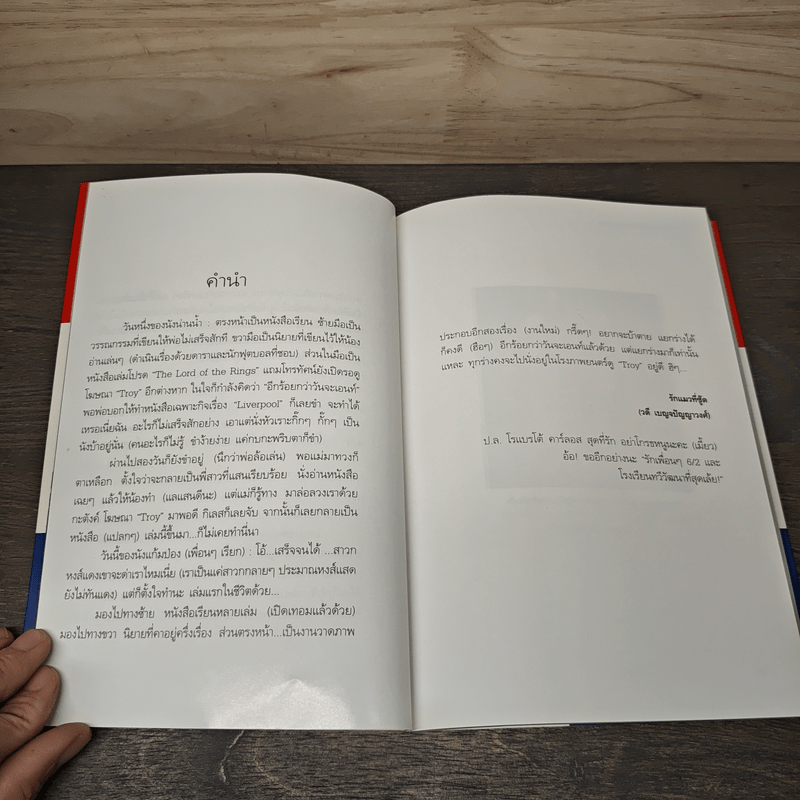 คำนำ
วันหนึ่งของนังน่านน้ำ : ตรงหน้าเป็นหนังสือเรียน ซ้ายมือเป็น
วรรณกรรมที่เขียนให้พ่อไม่เสร็จสักที ขวามือเป็นนิยายที่เขียนไว้ให้น้อง
อ่านเล่นๆ (ดำเนินเรื่องด้วยดาราและนักฟุตบอลที่ชอบ) ส่วนในมือเป็น
หนังสือเล่มโปรด "The Lord of the Rings" แถมโทรทัศน์ยังเปิดรอดู
โฆษณา "Troy" อีกต่างหาก ในใจก็กำลังคิดว่า "อีกร้อยกว่าวันจะเอนท์"
พอพ่อบอกให้ทำหนังสือเฉพาะกิจเรื่อง "Liverpool" ก็เลยขำ จะทำได้
เหรอเนี่ยฉัน อะไรก็ไม่เสร็จสักอย่าง เอาแต่นั่งหัวเราะกิ๊กๆ กั๊กๆ เป็น
นังบ้าอยู่นั่น (คนอะไรก็ไม่รู้ ขำง้ายง่าย แค่กบกะพริบตาก็ขำ)
ผ่านไปสองวันก็ยังขำอยู่ (นึกว่าพ่อล้อเล่น) พอแม่มาทวงก็
ตาเหลือก ตั้งใจว่าจะกลายเป็นพี่สาวที่แสนเรียบร้อย นั่งอ่านหนังสือ
เฉยๆ แล้วให้น้องทำ (แลแสนดีนะ) แต่แม่ก็รู้ทาง มาล่อลวงเราด้วย
กะตังค์ โฆษณา "Troy" มาพอดี กิเลสก็เลยจับ จากนั้นก็เลยกลายเป็น
หนังสือ (แปลกๆ) เล่มนี้ขึ้นมา...ก็ไม่เคยทำนี่นา
วันนี้ของนังแก้มป่อง (เพื่อนๆ เรียก) : โอ้...เสร็จจนได้ ...สาวก
หงส์แดงเขาจะด่าเราไหมเนี่ย (เราเป็นแค่สาวกกลายๆ ประมาณหงส์แสด
ยังไม่ทันแดง) แต่ก็ตั้งใจทำนะ เล่มแรกในชีวิตด้วย...
มองไปทางซ้าย หนังสือเรียนหลายเล่ม (เปิดเทอมแล้วด้วย)
มองไปทางขวา นิยายที่คาอยู่ครึ่งเรื่อง ส่วนตรงหน้า...เป็นงานวาดภาพ
ประกอบอีกสองเรื่อง (งานใหม่) กรี๊ดๆ! อยากจะบ้าตาย แยกร่างได้
ก็คงดี (ฮือๆ) อีกร้อยกว่าวันจะเอนท์แล้วด้วย แต่แยกร่างมาก็เท่านั้น
แหละ ทุกร่างคงจะไปนั่งอยู่ในโรงภาพยนตร์ดู "Troy" อยู่ดี ฮิๆ...
รักแมวที่ซู้ด
(วดี เบญจปัญญาวงศ์)
ป.ล. โรแบร์โต้ คาร์ลอส สุดที่รัก อย่าโกรธหนูนะคะ (เมี้ยว)
อ้อ! ขออีกอย่างนะ "รักเพื่อนๆ 6/2 และ
โรงเรียนทวีวัฒนาที่สุดเล้ย!"